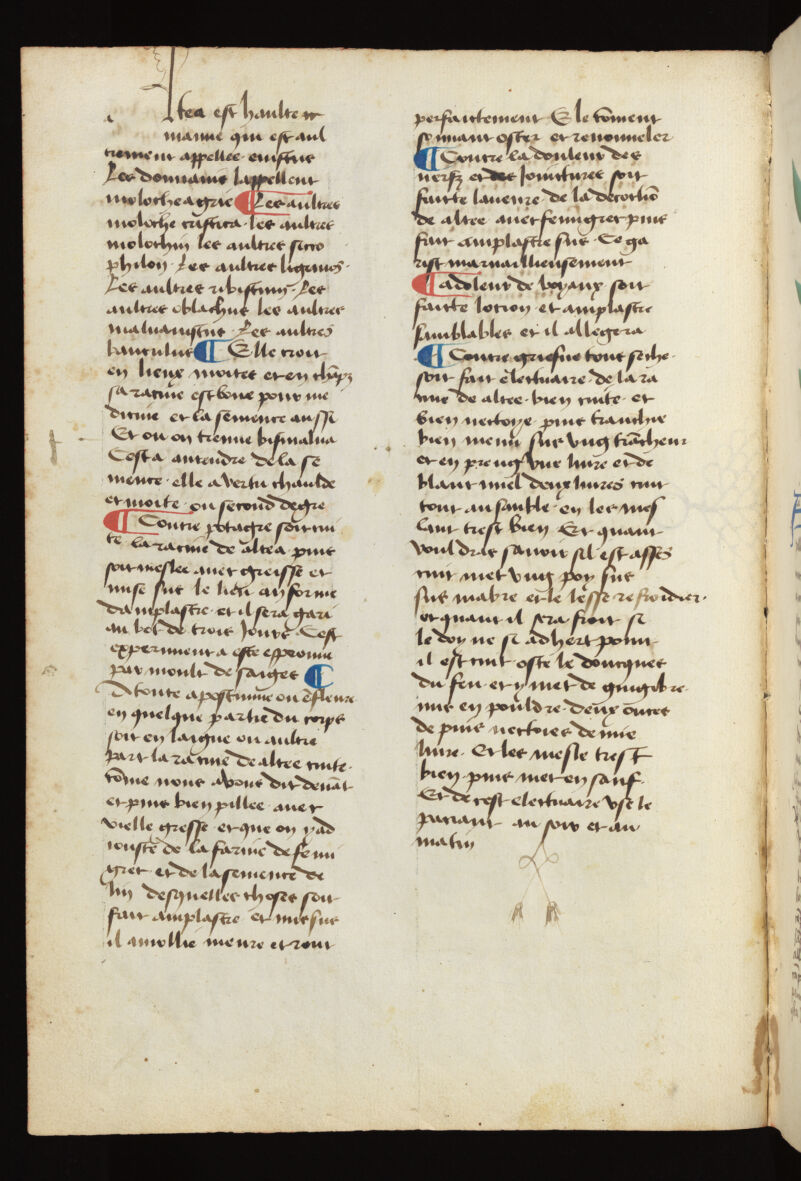 a
ltea est haulte et
mauue qui est aul
trement appellee euistus
Les dommains lappellent
molocheagrie ¶ Les aultres
moloche rustica · les aultres
molochin les aultres
philon · Les aultres
Les aultres ibiscum · Les
aultres les aultres
maluauiscus · Les aultres
¶ Elle croit
en lieux moites et en chāps
sa racine est bōne pour me
dicine et la semence aussi
Et ou on treuue bismalua
Cest a entendre de la se
mence · elle a vertu chaulde
et moite · ou second degre
¶ Contre potagre soit cui
te la racine de altea · puis
soit meslee auec greisse et
mise sus le lieu an forme
damplastre · et il sera gari
au bot de trois Jours · Cest
experiment a este esprouue
par moult de saiges ¶
A toute apostume ou ēfleure
en quelque partie du corps
soit en laigne ou aultre
part la racine de altee cuite ·
cōme nous auons dit deuāt
et puis bien pillee · auec
vielle gresse · et que on y ad
iouste de la farine de fenu
grec et de la semence de
lin desquelles choses soit
fait amplastre et mis sus
il amollie meure et ront
parfaictement Et le tōment
souuant oster et renouueler
¶ Contre la douleur des
nerfz et des Joinctures soit
faicte laueure de la decoctiō
de altee auec fenugrec puis
fait amplastre sus · Ce ga
rist maruailleusement
¶ A doleur de boyaux soit
faicte locion · et amplastre
samblables et il allegera
¶ Contre griefue toux seche ·
soit fait electuaire de la ra
cine de altee · bien cuite · et
bien nectoye · puis tranchie
bien menu sus vng trācheur
et en preng vne liure et de
blanc miel deux liures cuit
tout ansamble · en les mes
lant trest bien · Et quant
vouldras sauoir sil est asses
cuit met vng poy sus
sus mabre et le lesse refroidier ·
et quant il sera froit se
le doy ne se adhert point
il est cuit oste le doncques
du feu · et y met de gingibre
mis en pouldre · deux ōnces
de pins nectoies demie
liure · Et les mesle trest
bien · puis met en sauf ·
Et de cest electuaire vse le
paciant au soir et au
matin